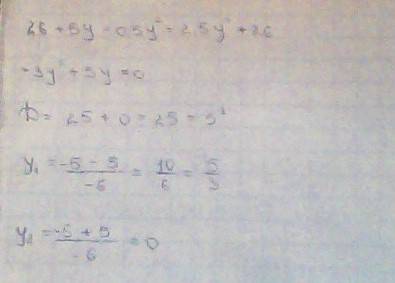 26 + 5y - 0,5y² = 2,5y² + 26
-3y² + 5y = 0
D = 25 + 0 = 25 = 5²
y₁ = (-5 - 5)/(-6) = 10/6 = 5/3
y₂ = (-5 + 5)/(-6) = 0